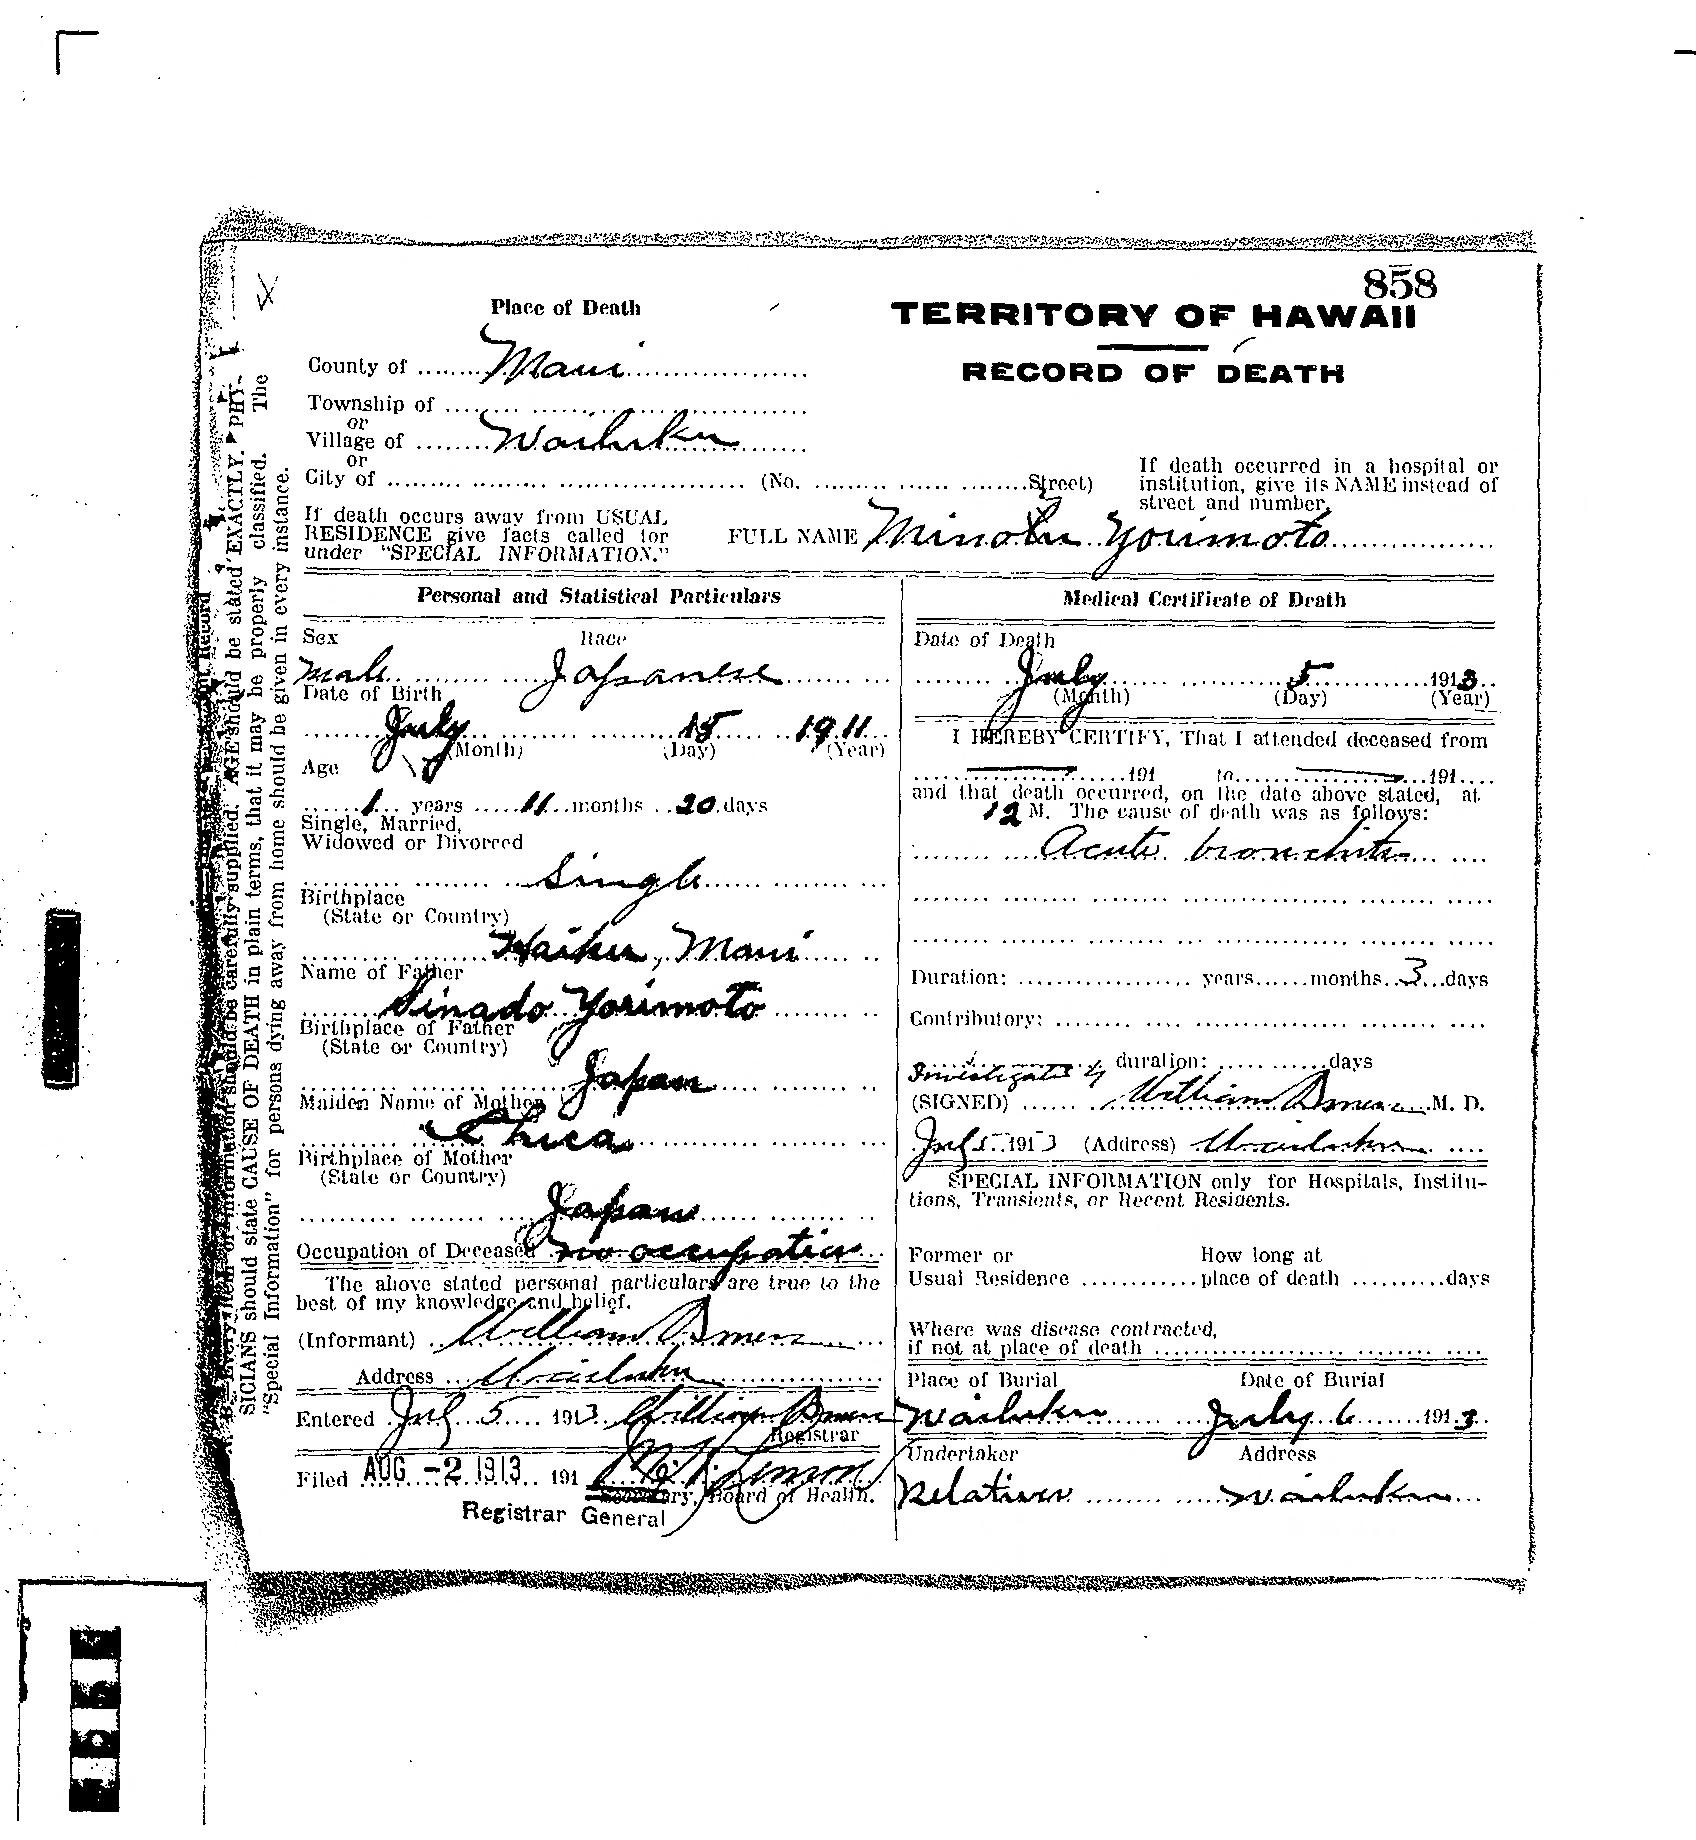 858
Place of Death
TERRITORY OF HAWAII
County of Maui
RECORD OF DEATH
Township of
or
Village of Wailuku
or
City of (No. Street)
If death occurred in a hospital or
institution, give its NAME instead of
street and number.
If death occurs away from USUAL
RESIDENCE give facts called for
under "SPECIAL INFORMATION."
FULL NAME Minoru Yorimoto
Personal and Statistical Particulars
Sex Race
Male Japanese
Date of Birth
July 15 1911
(Month) (Day) (Year)
Age
1 years 11 months 20 days
Single, Married,
Widowed or Divorced
Single
Birthplace
(State or Country)
Haiku, Maui
Name of Father
Yorimoto
Birthplace of Father
(State or Country)
Japan
Maiden Name of Mother
Birthplace of Mother
(State or Country)
Japan
Occupation of Deceased no occupation
The above stated personal particulars are true to the
best of my knowledge and belief.
(Informant) William
Address Wailuku
Entered July 5 1913 William
Registrar
Filed AUG -2 1913 191
Secretary, Board of Health.
Registrar General
Medical Certificate of Death
Date of Death
July 5 1913
(Month) (Day) (Year)
I HEREBY CERTIFY, That I attended deceased from
191 to 191
and that death occurred, on the date above stated, at
12 M. The cause of death was as follows:
Acute bronchitis
Duration: years months 3 days
Contributory:
duration: days
Investigated by
(SIGNED) William M. D.
July 5 1913 (Address) Wailuku
SPECIAL INFORMATION only for Hospitals, Institu-
tions, Transients, or Recent Residents.
Former or How long at
Usual Residence place of death days
Where was disease contracted,
if not at place of death
Place of Burial Date of Burial
Wailuku July 6 1913
Undertaker Address
Relatives Wailuku
SICIANS should state CAUSE OF DEATH in plain terms, that it may be properly classified. The
"Special Information" for persons dying away from home should be given in every instance.